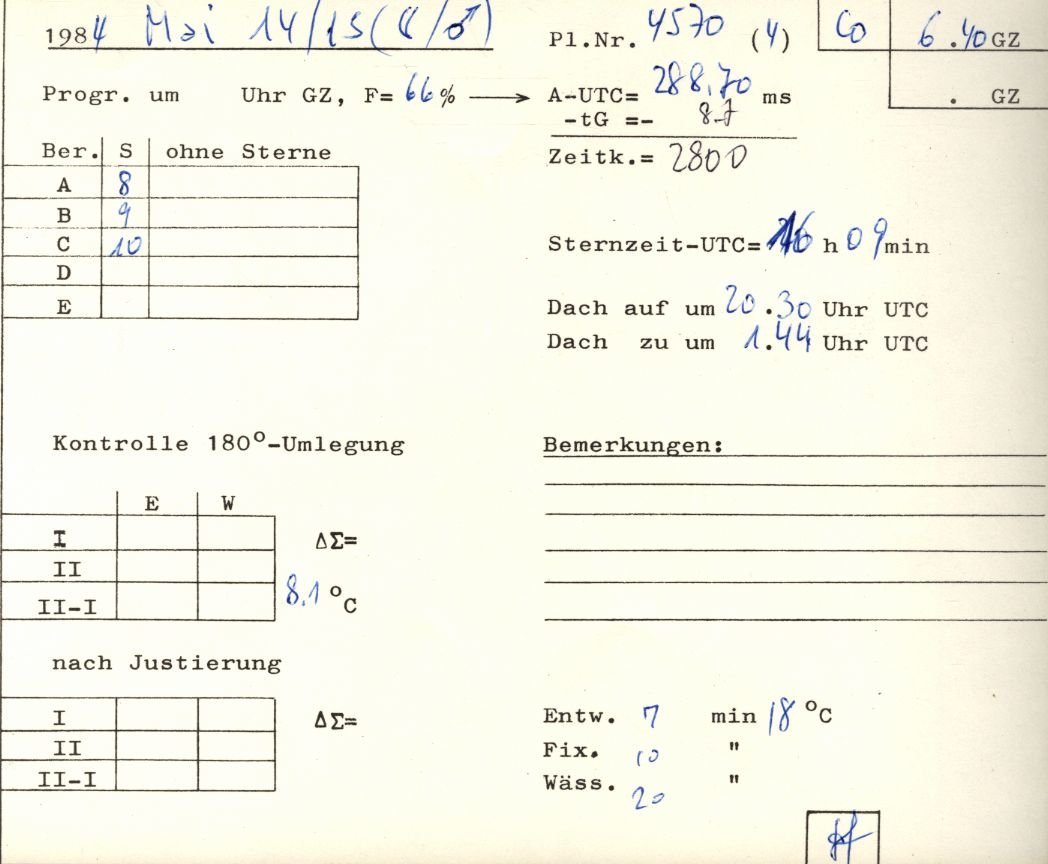 1984 Mai 14/15 (☾/♂) Pl.Nr. 4570 (4) Co 6.40 GZ
. GZ
Progr. um Uhr GZ, F= 66% → A-UTC= 288.70 ms
-tG =- 8.7
Zeitk.= 2800
Ber. S ohne Sterne
A 8
B 9
C 10
D
E
Sternzeit-UTC= 16 h 09 min
Dach auf um 20.30 Uhr UTC
Dach zu um 1.44 Uhr UTC
Kontrolle 180°-Umlegung
Bemerkungen:
E W
I ΔΣ=
II
II-I 8.1 °C
nach Justierung
I ΔΣ=
II
II-I
Entw. 7 min 18 °C
Fix. 10 "
Wäss. 20 "